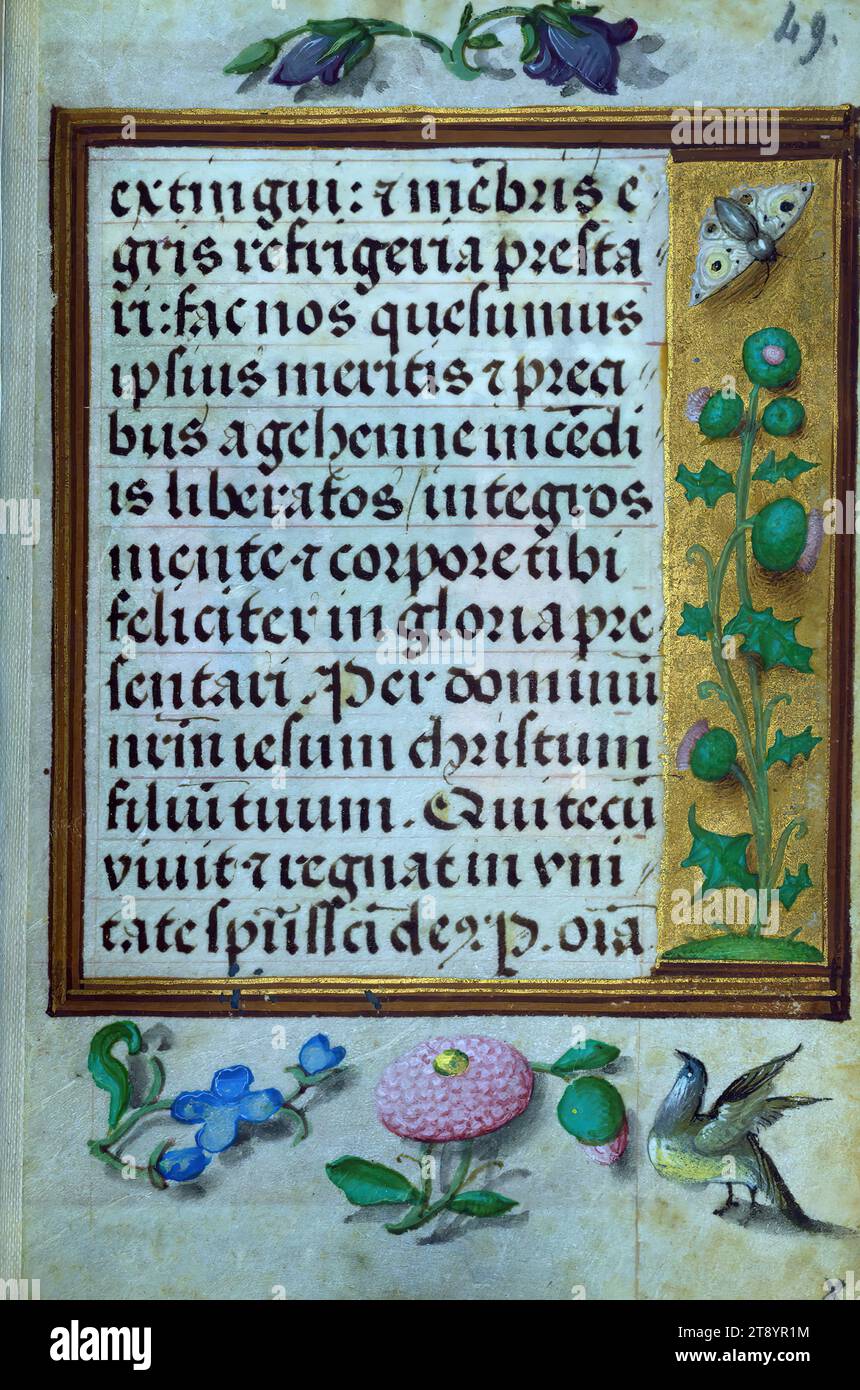 49.
extingui: ⁊ mēbris e
gris refrigeria presta
ri: fac nos quesumus
ipsius meritis ⁊ preci
bus a gehenne incēdi
is liberatos / integros
mente ⁊ corpore tibi
feliciter in gloria pre
sentari. Per dominū
nr̄m iesum christum
filiū tuum. Qui tecū
viuit ⁊ regnat in vni
tate sp̄us sc̄i deꝰ. P. oīa
alamy
Image ID: 2T8YR1M
www.alamy.com